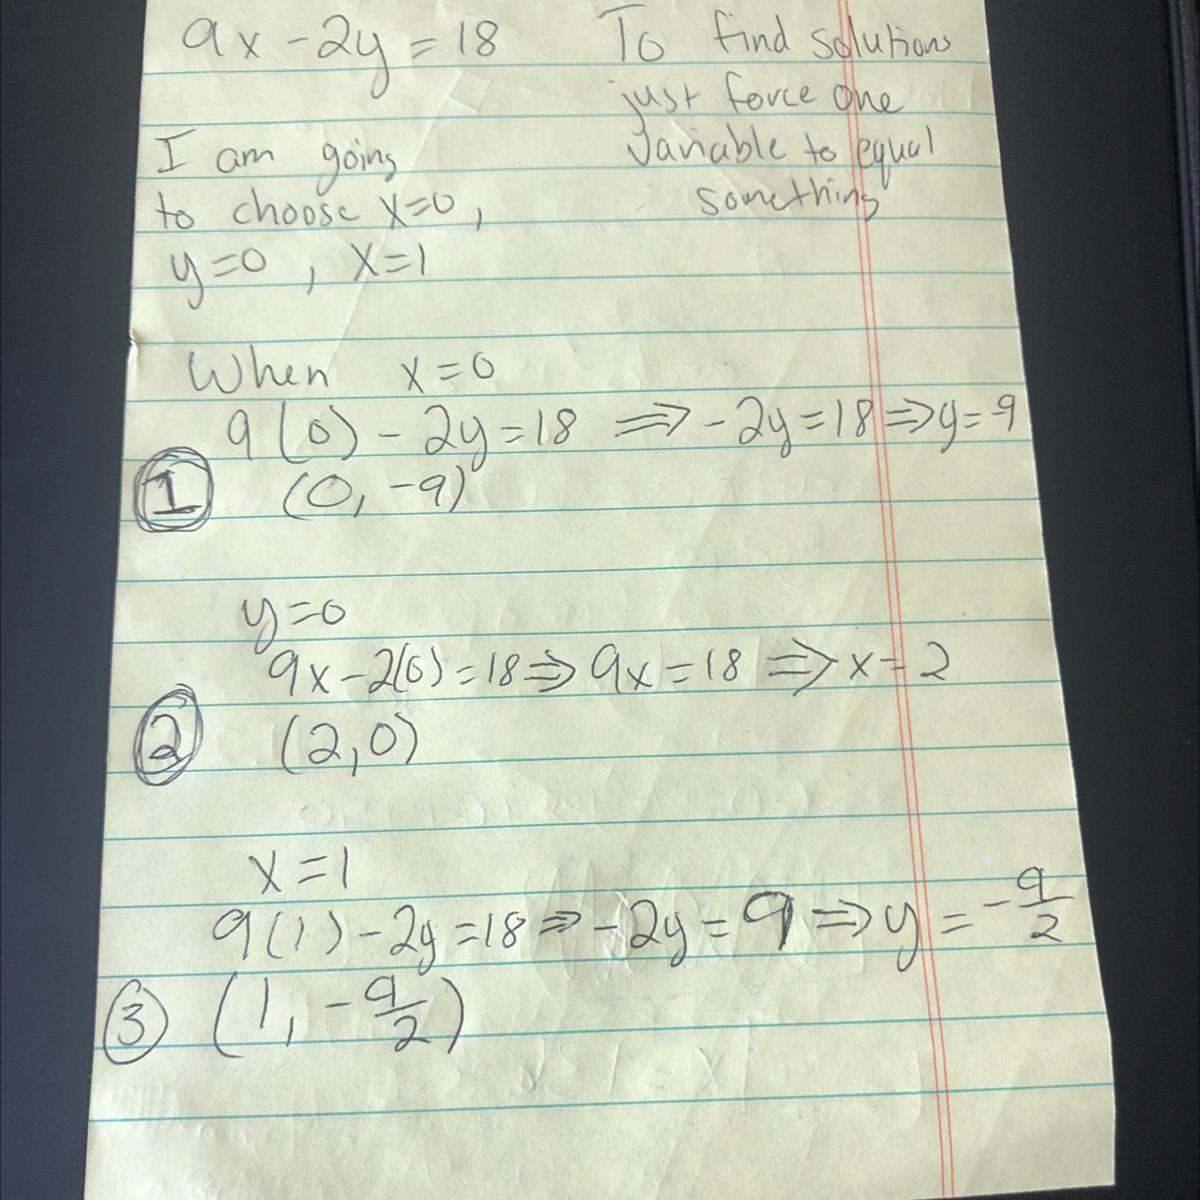 9x - 2y = 18
To find solutions
just force one
variable to equal
something
I am going
to choose x=0,
y=0, x=1
When x=0
9(0) - 2y = 18 ⇒ -2y = 18 ⇒ y = 9
1 (0, -9)
y=0
9x - 2(0) = 18 ⇒ 9x = 18 ⇒ x = 2
2 (2,0)
x=1
9(1) - 2y = 18 ⇒ -2y = 9 ⇒ y = -9/2
3 (1, -9/2)